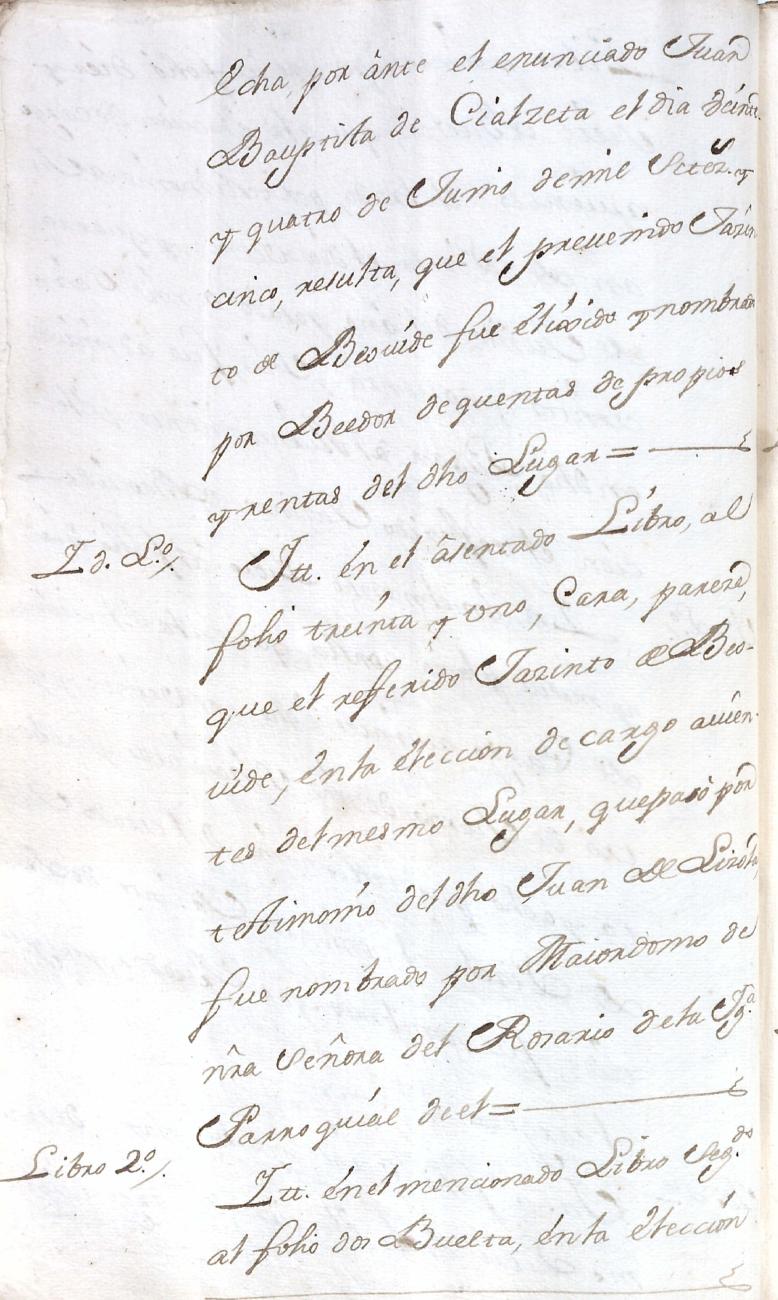 Echa, por ânte el enunciado Juan
Bauptista de Cialzeta el dia veinte
y quatro de Junio de mil Setez.s y
cinco, resulta, que el prevenido Jazin
to de Beovide fue êlixido y nombrado
por Beedor de quentas de propios
y rentas del dho Lugar =
Id. Lo.
Itt. én el âsentado Libro, al
folio treinta y uno, Cara, pareze,
que el referido Jazinto de Beo-
vide, én la élección de cargo avien-
tes del mesmo Lugar, que pasó por
testimonio del dho Juan de Lizola,
fue nombrado por Maiordomo de
nra Señora del Rosario de la Yg.a
Parroquial de el =
Libro 2o.
Itt. én el mencionado Libro Seg.do
al folio dos Buelta, én la élección